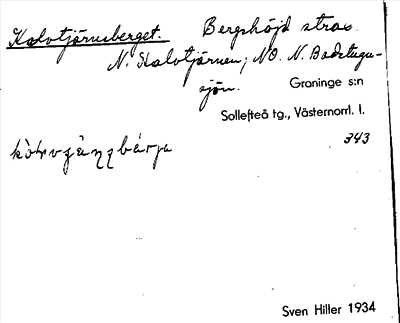 Kalvtjärnsberget. Bergshöjd strax
N. Kalvtjärnen; NO. N. Badstugu-
sjön.
Graninge s:n
Sollefteå tg., Västernorrl. l.
343
Sven Hiller 1934